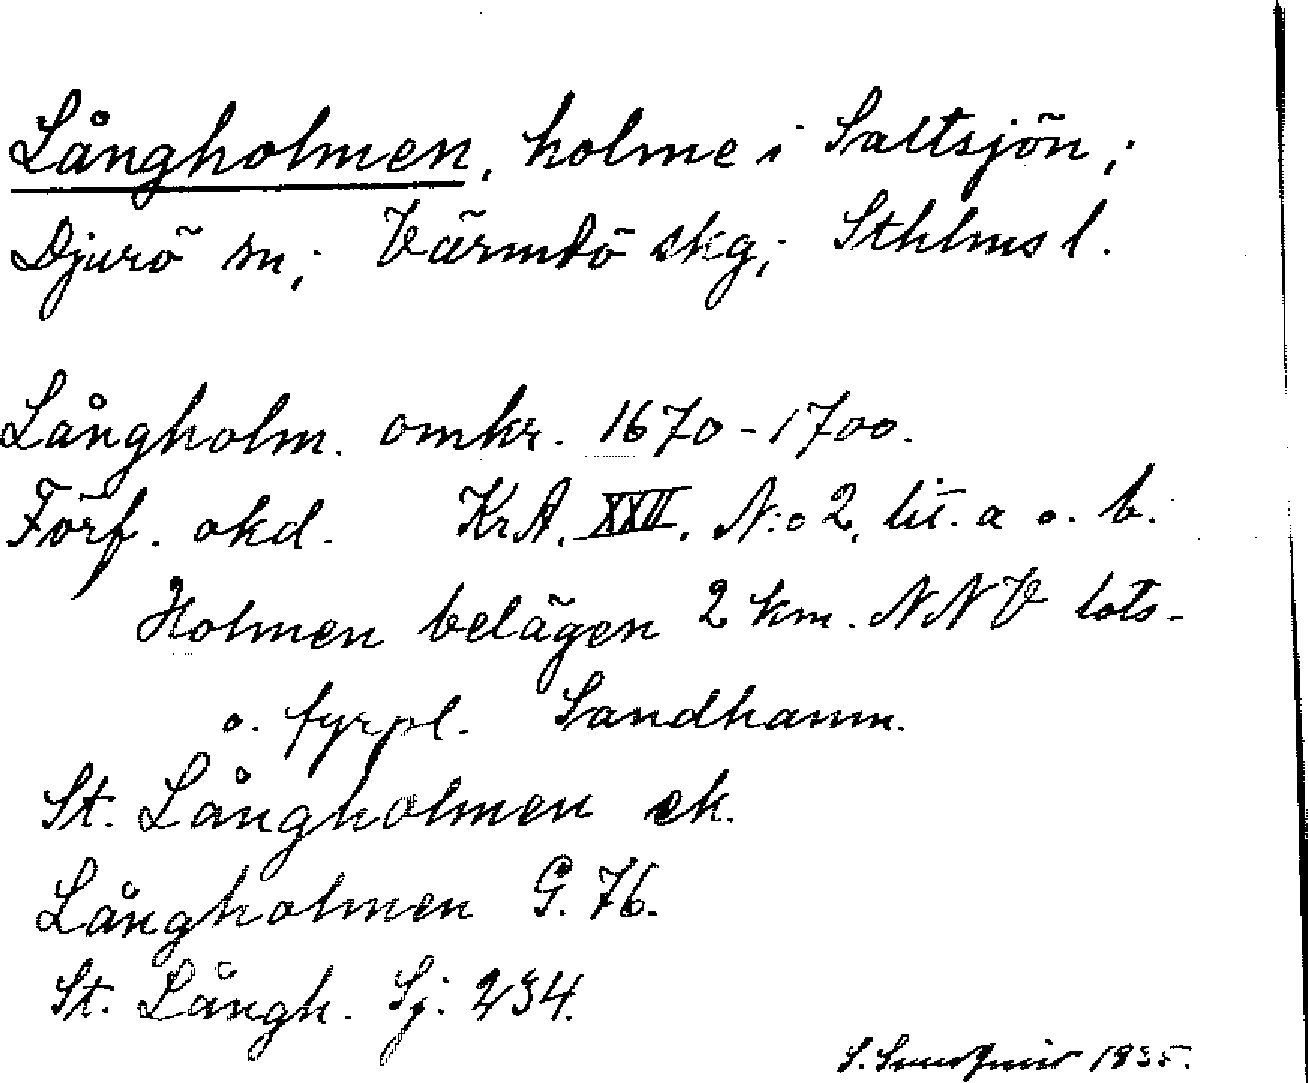 Långholmen, holme i Saltsjön;
Djurö sn; Värmdö skg; Sthlms l.
Långholm. omkr. 1670-1700.
Förf. okd. KrA. XXII. N:o 2, lit. a o. b.
Holmen belägen 2 km. NNV lots-
o. fyrpl. Sandhamn.
St. Långholmen ek.
Långholmen G. 76.
St. Långh. Sj. 234.
1935.